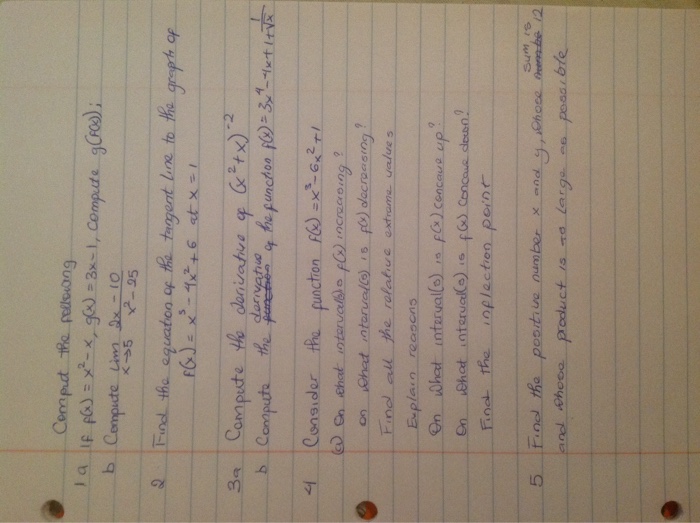 Comput the following
1a If f(x) = x² - x, g(x) = 3x - 1, compute g(f(x));
b Compute Lim x→5 2x - 10 / x² - 25
2 Find the equation of the tangent line to the graph of
f(x) = x³ - 4x² + 6 at x = 1
3a Compute the derivative of (x² + x)⁻²
b Compute the derivative of the function f(x) = 3x⁴ - 4x + 1 + 1/√x
4 Consider the function f(x) = x³ - 6x² + 1
(a) On what interval(s) is f(x) increasing?
on what interval(s) is f(x) decreasing?
Find all the relative extreme values
Explain reasons
On what interval(s) is f(x) concave up?
On what interval(s) is f(x) concave down?
Find the inflection point
5 Find the positive number x and y, whose sum is 12
and whose product is as large as possible